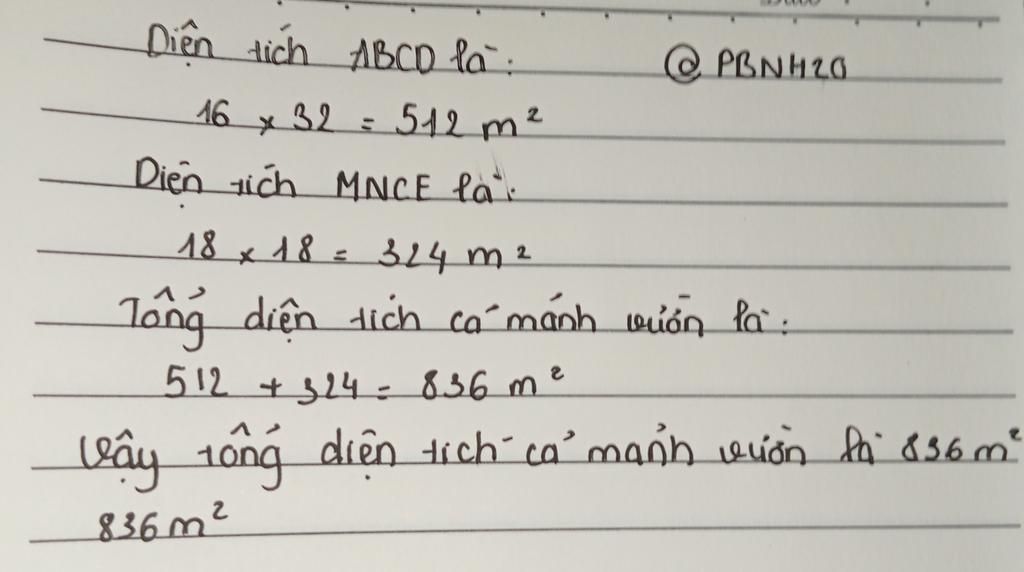 Diện tích ABCD là: @PBNH20
16 × 32 = 512 m²
Diện tích MNCE là:
18 × 18 = 324 m²
Tổng diện tích cả mảnh vườn là:
512 + 324 = 836 m²
Vậy tổng diện tích cả mảnh vườn là 836 m²
836 m²